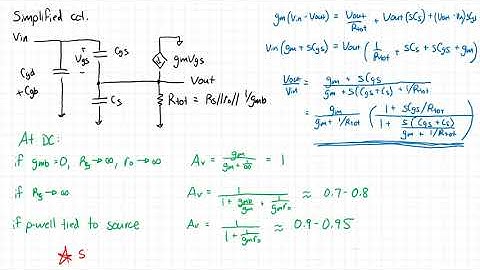 Simplified cct.
Vin
Cgd + Cgb
Vgs
+
-
Cgs
gmVgs
Vout
Cs
Rtot = Rs||ro|| 1/gmb
gm(Vin - Vout) = Vout/Rtot + Vout(sCs) + (Vout - Vin)sCgs
Vin(gm + sCgs) = Vout(1/Rtot + sCs + sCgs + gm)
Vout/Vin = (gm + sCgs)/(gm + s(Cgs + Cs) + 1/Rtot)
= gm/(gm + 1/Rtot) ((1 + sCgs/Rtot)/(1 + s(Cgs + Cs)/(gm + 1/Rtot)))
At DC:
if gmb = 0, Rs → ∞, ro → ∞ Av = gm/(gm + 1/∞) = 1
if Rs → ∞ Av = 1/(1 + gmb/gm + 1/gmro) ≈ 0.7-0.8
if p-well tied to source Av = 1/(1 + 1/gmro) ≈ 0.9-0.95
S